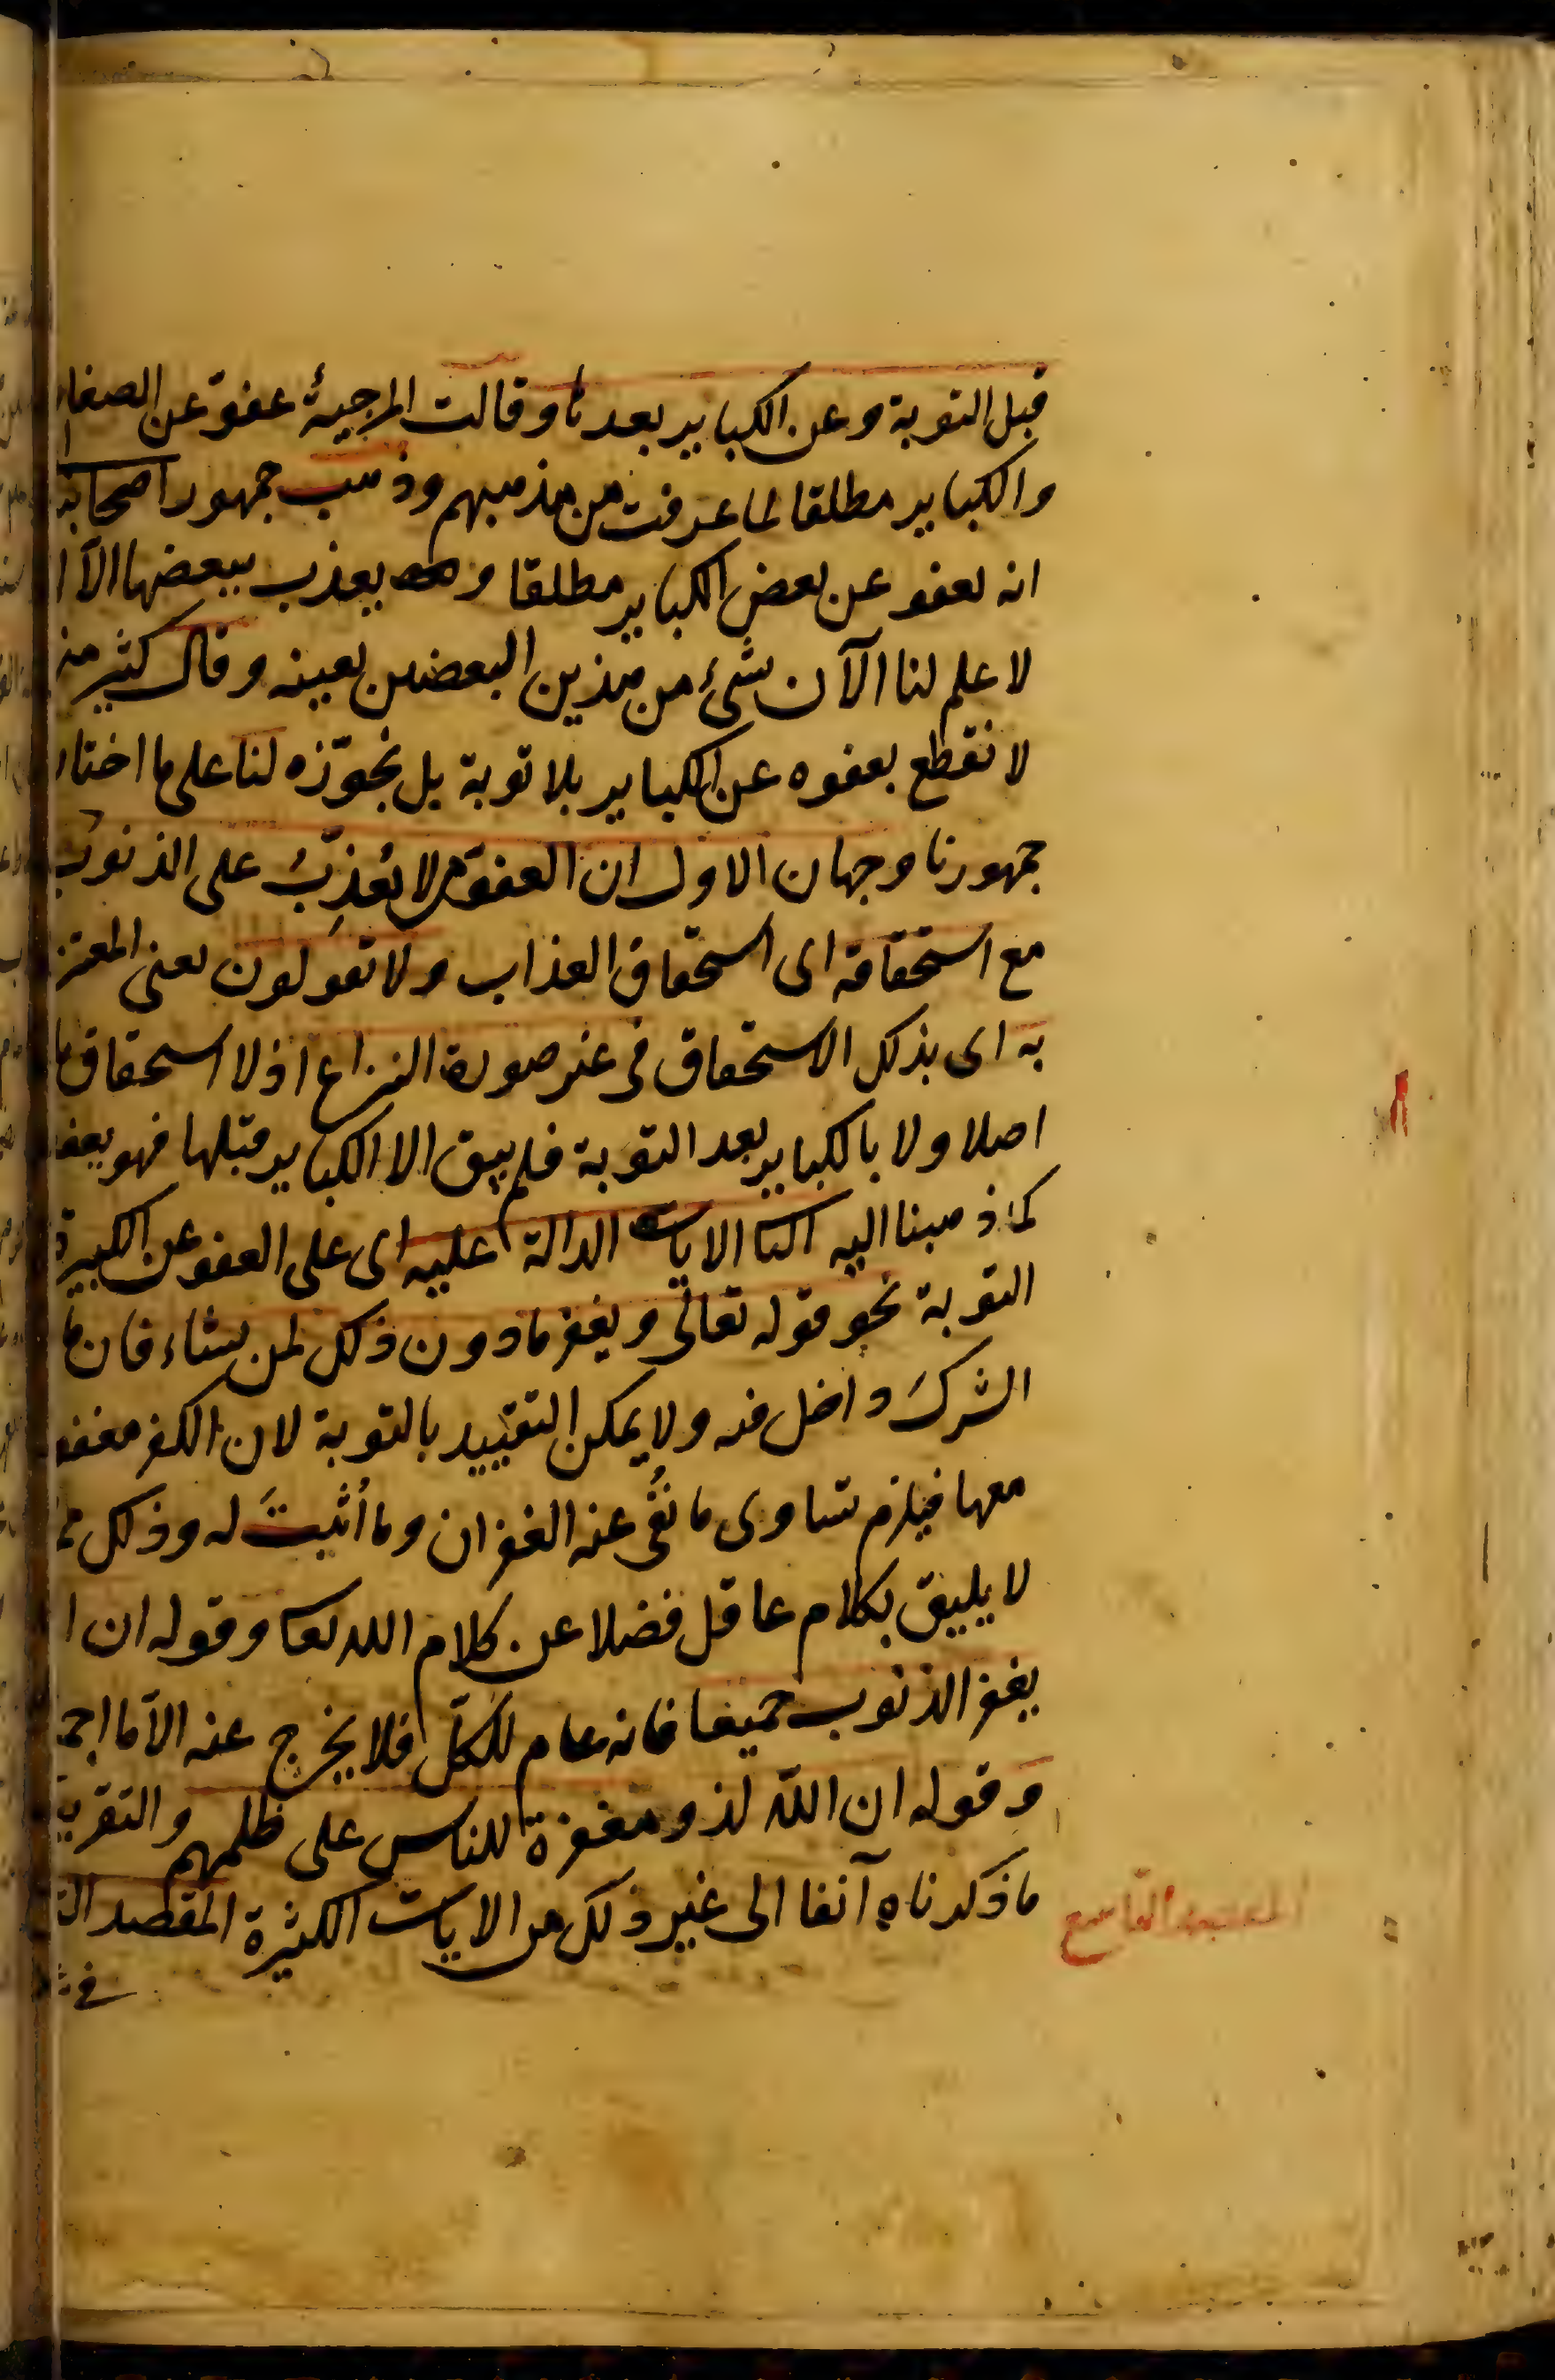 قبل التوبة وعن الكباير بعدها وقالت المرجيئة عفو عن الصغا
والكباير مطلقا لما عرفت من مذهبهم وذهب جمهور اصحابنا
انه يعفو عن بعض الكباير مطلقا و يعذب ببعضها الا ا
لا علم لنا الآن بشئ من هذين البعضين بعينه وقال كثير منهم
لا نقطع بعفوه عن الكباير بلا توبة بل نجوّزه لنا على ما اختار
جمهورنا وجهان الاول ان العفو من لا يُعذِّبُ على الذنوب
مع استحقاقه اى استحقاق العذاب ولا تقولون يعنى المعتز
به اى بذلك الاستحقاق فى غير صورة النزاع اذ لا استحقاق
اصلا ولا بالكباير بعد التوبة فلم يبق الا الكباير قبلها فهو يعفو
كما ذهبنا اليه الثا الايات الدالة عليه اى على العفو عن الكبيرة
التوبة نحو قوله تعالى ويغفر ما دون ذلك لمن يشاء فان ما
الشرك داخل فيه ولا يمكن التقييد بالتوبة لان الكفر مغفو
معها فيلزم تساوى ما نُفى عنه الغفران وما أُثبتَ له وذلك مما
لا يليق بكلام عاقل فضلا عن كلام الله تعا وقوله ان ا
يغفر الذنوب جميعا فانه عام للكلّ فلا يخرج عنه الا ما اجم
وقوله ان اللّه لذو مغفرة للناس على ظلمهم والتقري
ما ذكرناه آنفا الى غير ذلك من الايات الكثيرة المقصد الت
فى
المقصد التاسع